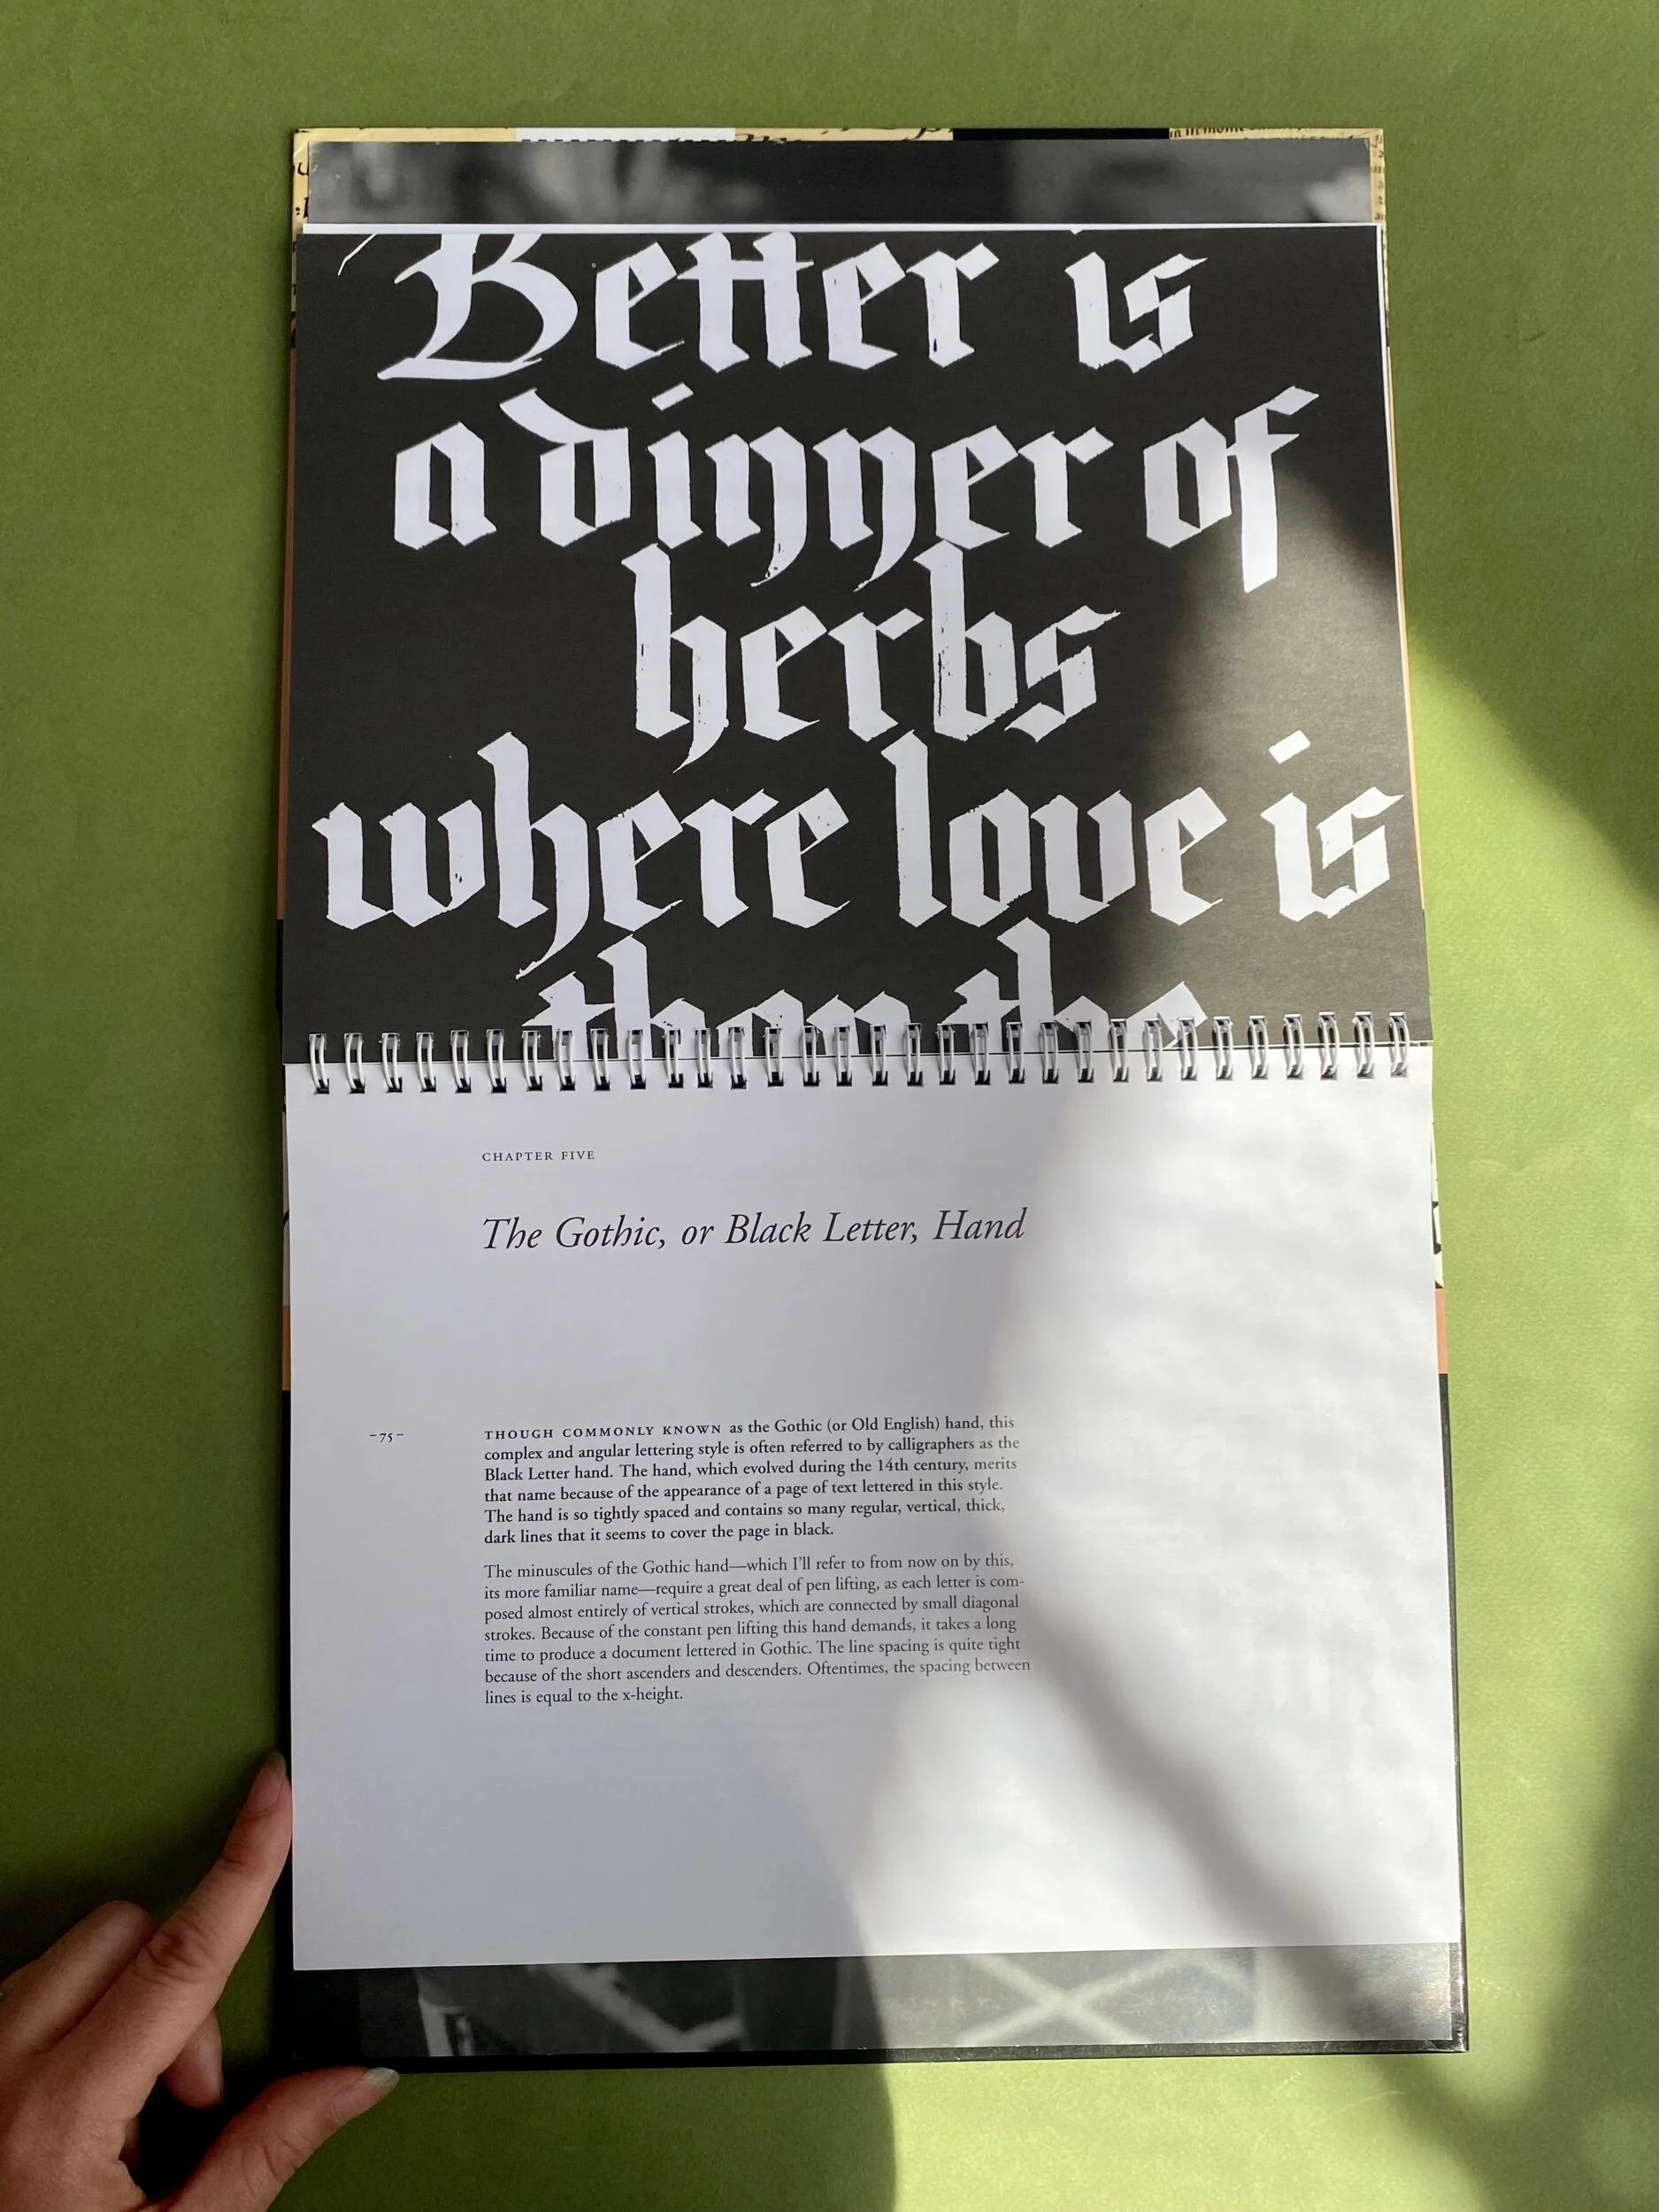 Better is
a dinner of
herbs
where love is
than the
CHAPTER FIVE
The Gothic, or Black Letter, Hand
-75-
THOUGH COMMONLY KNOWN as the Gothic (or Old English) hand, this
complex and angular lettering style is often referred to by calligraphers as the
Black Letter hand. The hand, which evolved during the 14th century, merits
that name because of the appearance of a page of text lettered in this style.
The hand is so tightly spaced and contains so many regular, vertical, thick,
dark lines that it seems to cover the page in black.
The minuscules of the Gothic hand—which I'll refer to from now on by this,
its more familiar name—require a great deal of pen lifting, as each letter is com-
posed almost entirely of vertical strokes, which are connected by small diagonal
strokes. Because of the constant pen lifting this hand demands, it takes a long
time to produce a document lettered in Gothic. The line spacing is quite tight
because of the short ascenders and descenders. Oftentimes, the spacing between
lines is equal to the x-height.